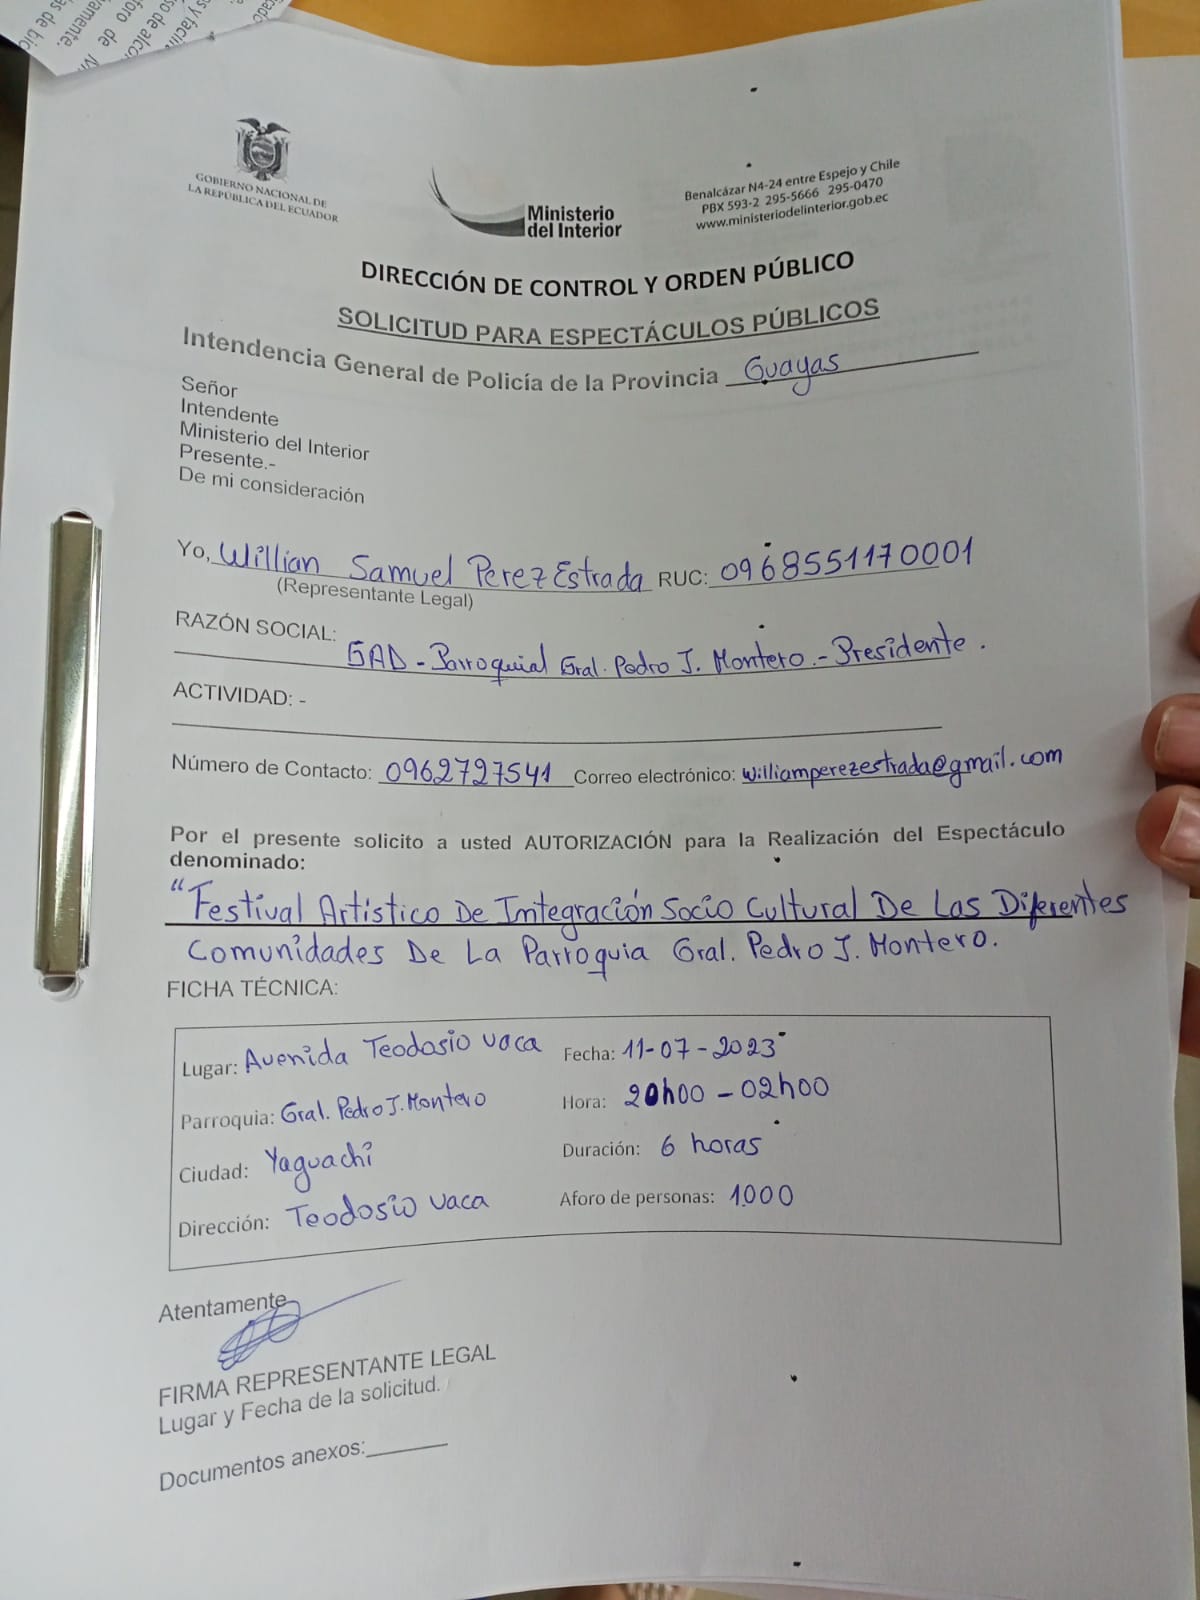 GOBIERNO NACIONAL DE
LA REPÚBLICA DEL ECUADOR
Ministerio
del Interior
Benalcázar N4-24 entre Espejo y Chile
PBX 593-2 295-5666 295-0470
www.ministeriodelinterior.gob.ec
DIRECCIÓN DE CONTROL Y ORDEN PÚBLICO
SOLICITUD PARA ESPECTÁCULOS PÚBLICOS
Intendencia General de Policía de la Provincia Guayas
Señor
Intendente
Ministerio del Interior
Presente.-
De mi consideración
Yo, Willian Samuel Perez Estrada RUC: 0968551170001
(Representante Legal)
RAZÓN SOCIAL:
GAD - Parroquial Gral. Pedro J. Montero.- Presidente.
ACTIVIDAD: -
Número de Contacto: 0962727541 Correo electrónico: williamperezestrada@gmail.com
Por el presente solicito a usted AUTORIZACIÓN para la Realización del Espectáculo
denominado:
"Festival Artístico De Integración Socio Cultural De Las Diferentes
Comunidades De La Parroquia Gral. Pedro J. Montero.
FICHA TÉCNICA:
Lugar: Avenida Teodosio vaca Fecha: 11-07-2023
Parroquia: Gral. Pedro J. Montero Hora: 20h00 - 02h00
Ciudad: Yaguachi Duración: 6 horas
Dirección: Teodosio vaca Aforo de personas: 1000
Atentamente
FIRMA REPRESENTANTE LEGAL
Lugar y Fecha de la solicitud.
Documentos anexos: